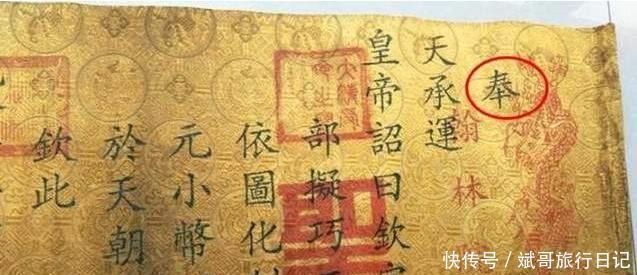 奉
天承運
皇帝詔曰欽
部擬巧
依圖化
元小幣
於天朝
欽此
翰林
快传号／斌哥旅行日记